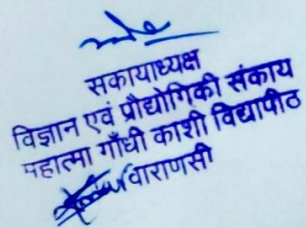 सकायाध्यक्ष
विज्ञान एवं प्रौद्योगिकी संकाय
महात्मा गाँधी काशी विद्यापीठ
वाराणसी